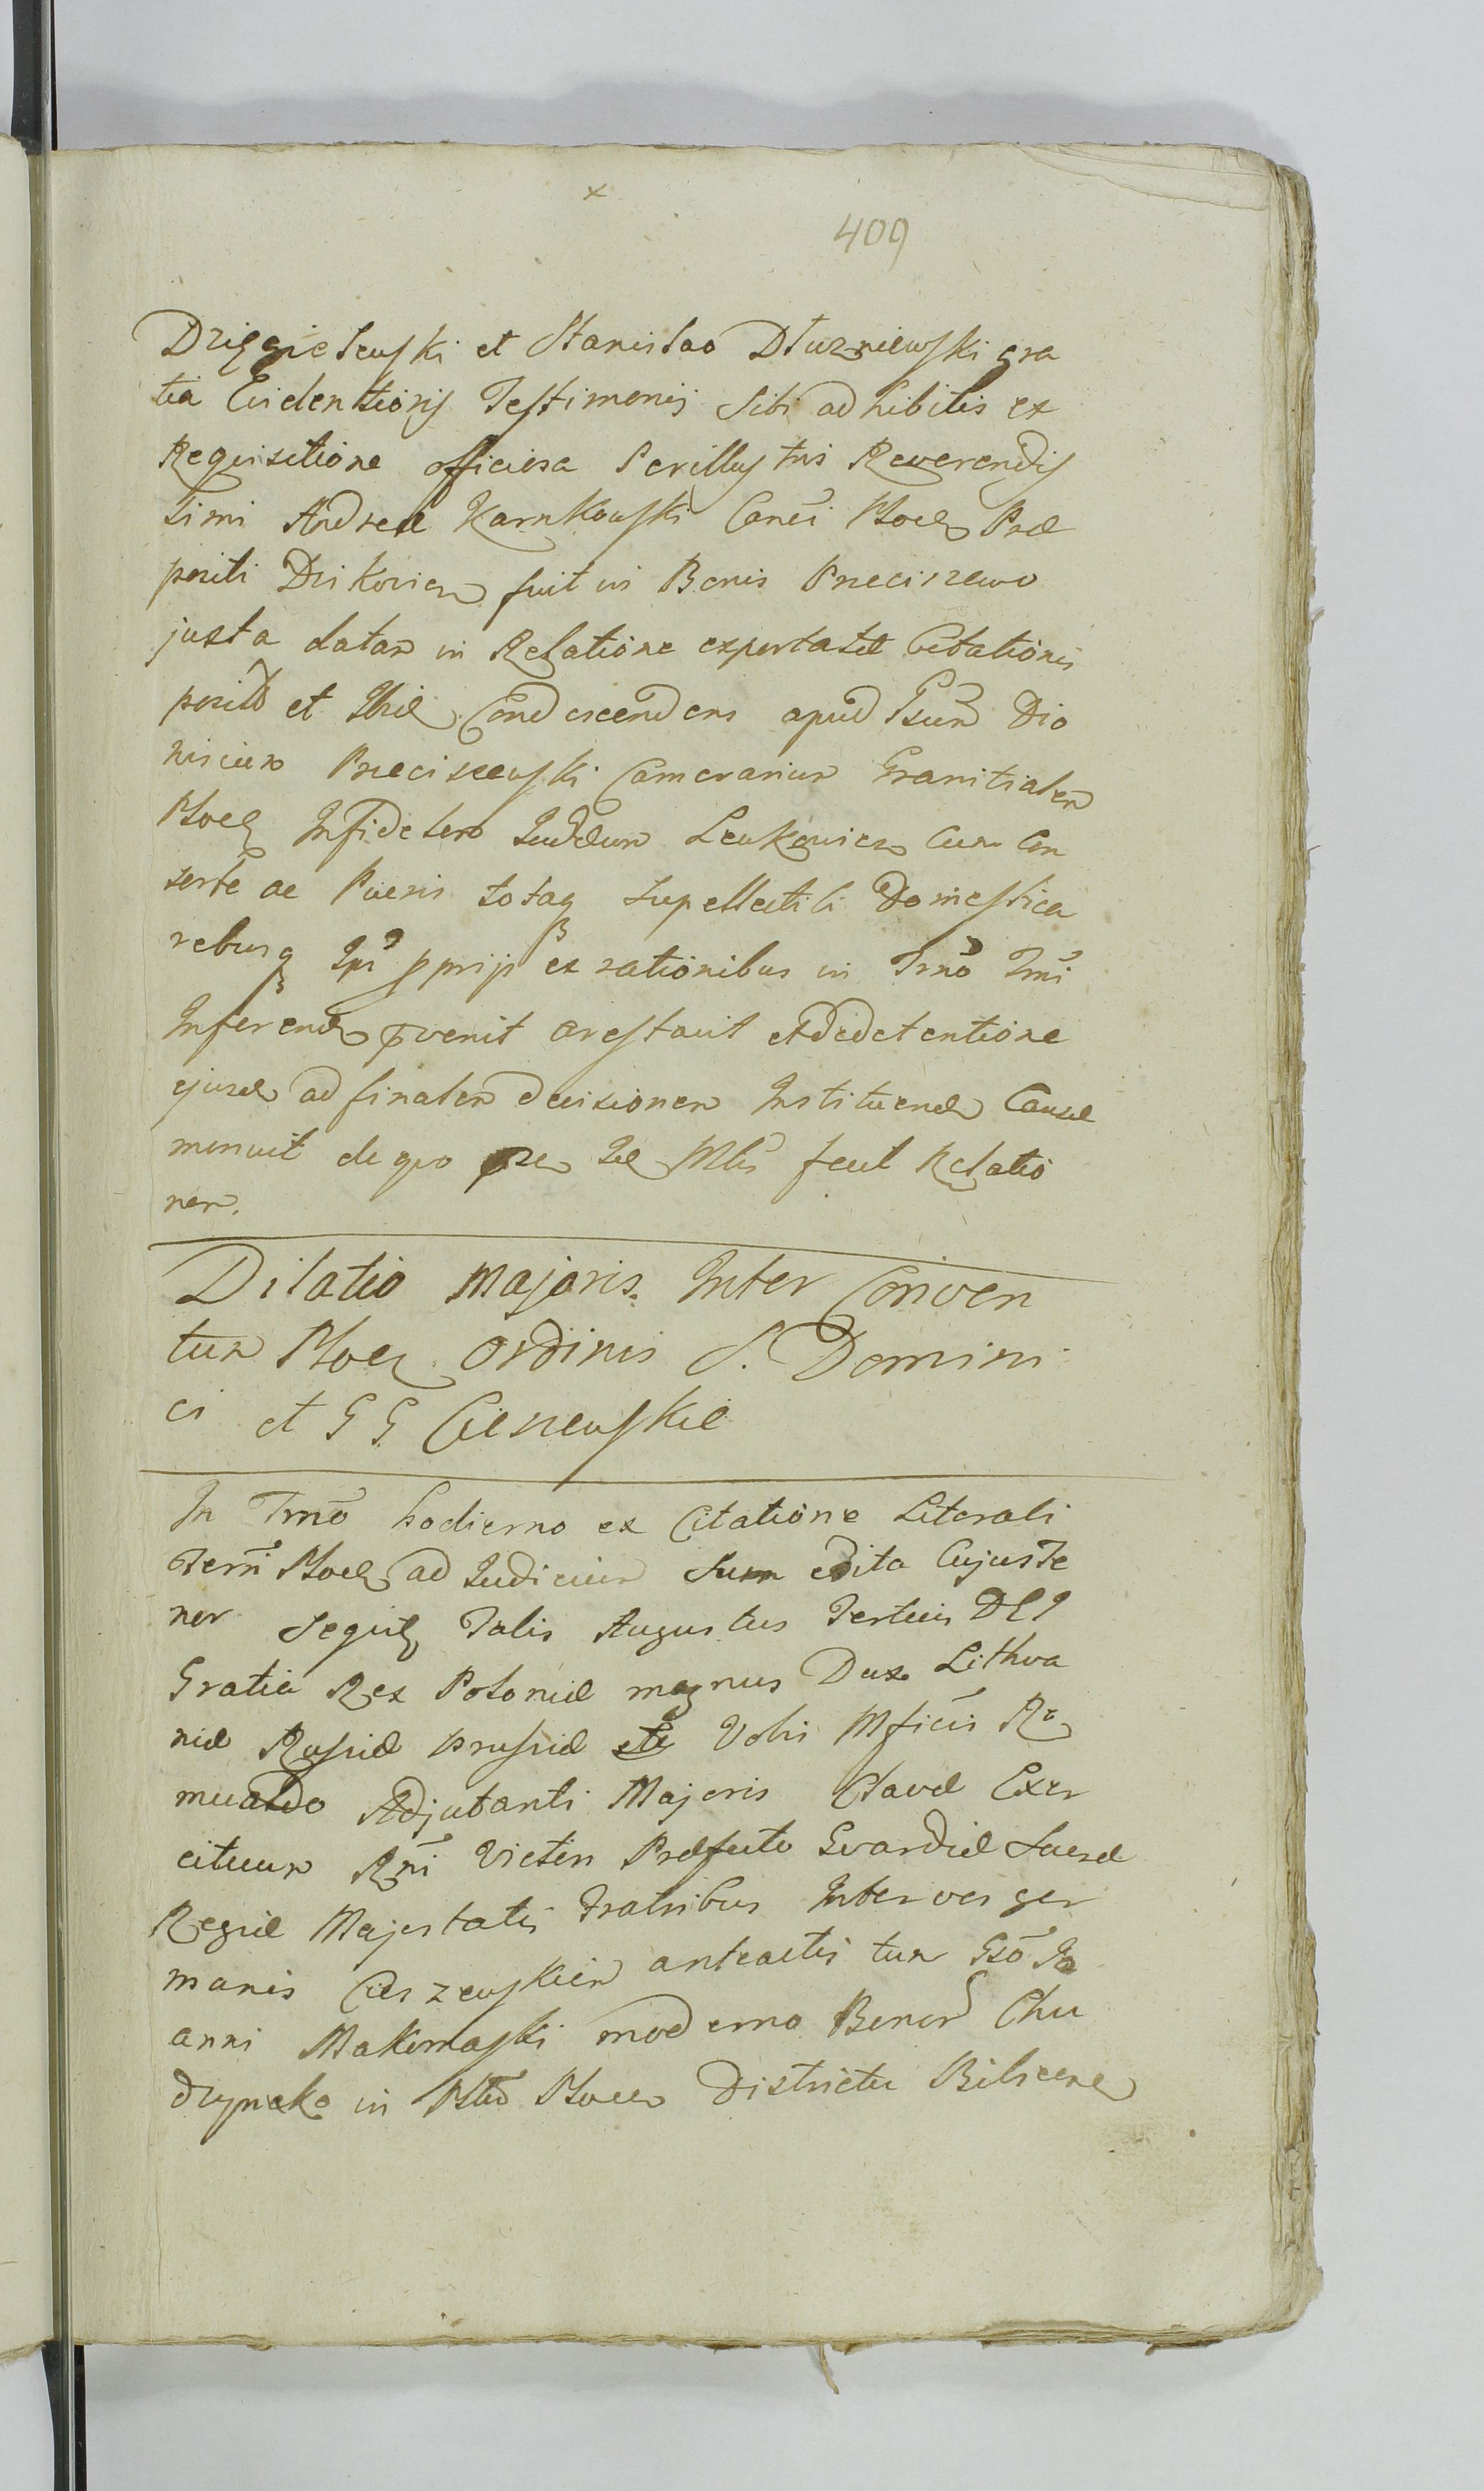 x
409
Dzięgielewski et Stanislao Dłuzniewski gra
tia Evidentioris Testimonij Sibi adhibitis ex
Requisitione officiosa Perillustris Reverendis
simi Andreæ Karnkowski Canci Plocen Præ
positi fuit in Bonis Przeciszewo
juxta datam in Relatione expertatæ Citationis
et Ibid Condescendens apud Gsum Dio
nisium Przeciszewski Camerarium Granitialem
Plocen Infidelem Judæum Lewkowicz Cum Con
sorte ac Pueris totaq Supellectili Domestica
rebusq Ipi pprijs ex rationibus in Trno Trmi
Inferend pvenit arestavit et de detentione
ejusd ad finalem decisionem Instituend Causæ
monuit de quo Mlis fecit Relatio
nem.
Dilatio Majoris Inter Conven
tum Plocen Ordinis S. Domini
ci et G G Cieszewskie
In Trno hodierno ex Citatione Literali
Terri Plocen ad Judicium Suum edita Cujus Te
nor Sequit Talis Augustus Tertius DEI
Gratia Rex Poloniæ magnus Dux Lithva
niæ Russiæ Prussiæ etc Vobis Mficis Ro
mualdo Adjutanti Majoris Clavæ Exer
cituum Rni Præfecto Gvardiæ Sacræ
Regiæ Majestatis Fratribus Inter vos ger
manis Cieszewskim anteactis tum Gso Jo
anni Makomaski moderno Bonor Chu
dzynko in Pltu Plocen Districtu Bilscen